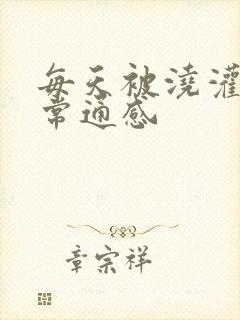 每天被浇灌
常通感
章宗祥